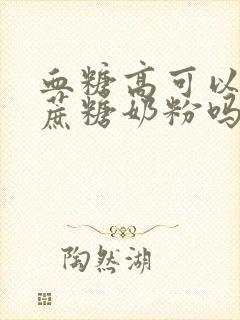 血糖高可以
蔗糖奶粉吗
陶然湖